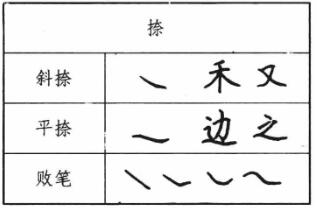 捺
斜捺 ㇏ 禾 又
平捺 ㇏ 边 之
败笔